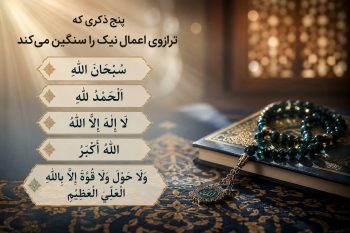 پنج ذکری که
ترازوی اعمال نیک را سنگین می‌کند
سُبْحَانَ اللهِ
اَلْحَمْدُ لِلّٰهِ
لَا إِلٰهَ إِلَّا اللهُ
اللهُ أَكْبَرُ
وَلَا حَوْلَ وَلَا قُوَّةَ إِلَّا بِاللهِ
الْعَلِيِّ الْعَظِيْمِ